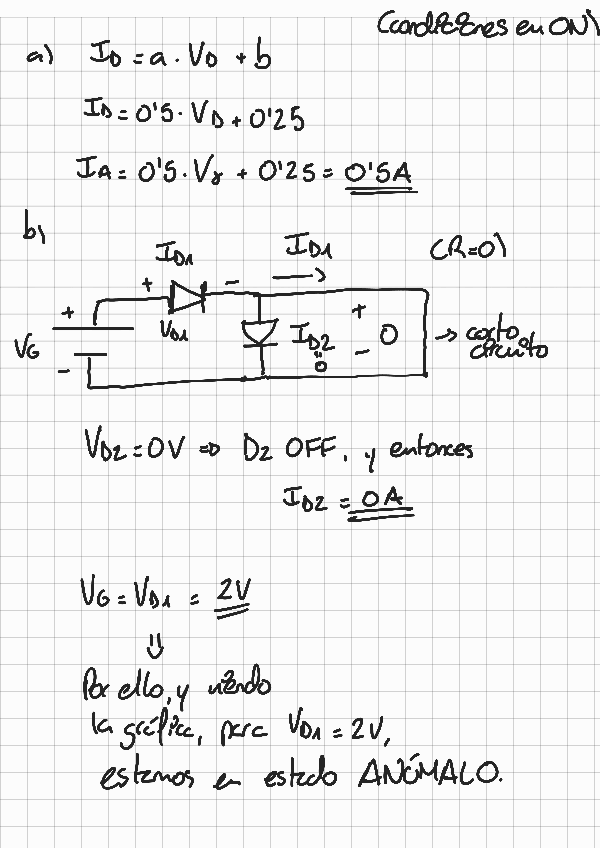 (condiciones en ON)
a) I_D = a · V_D + b
I_D = 0'5 · V_D + 0'25
I_A = 0'5 · V_γ + 0'25 = 0'5A
b)
I_D1 I_D1 (R=0)
+ - →
+ V_D1 I_D2 + 0 - → corto circuito
V_G - 0
V_D2 = 0V ⇒ D2 OFF, y entonces
I_D2 = 0A
V_G = V_D1 = 2V
⇓
Por ello, y viendo
la gráfica, para V_D1 = 2V,
estamos en estado ANÓMALO.